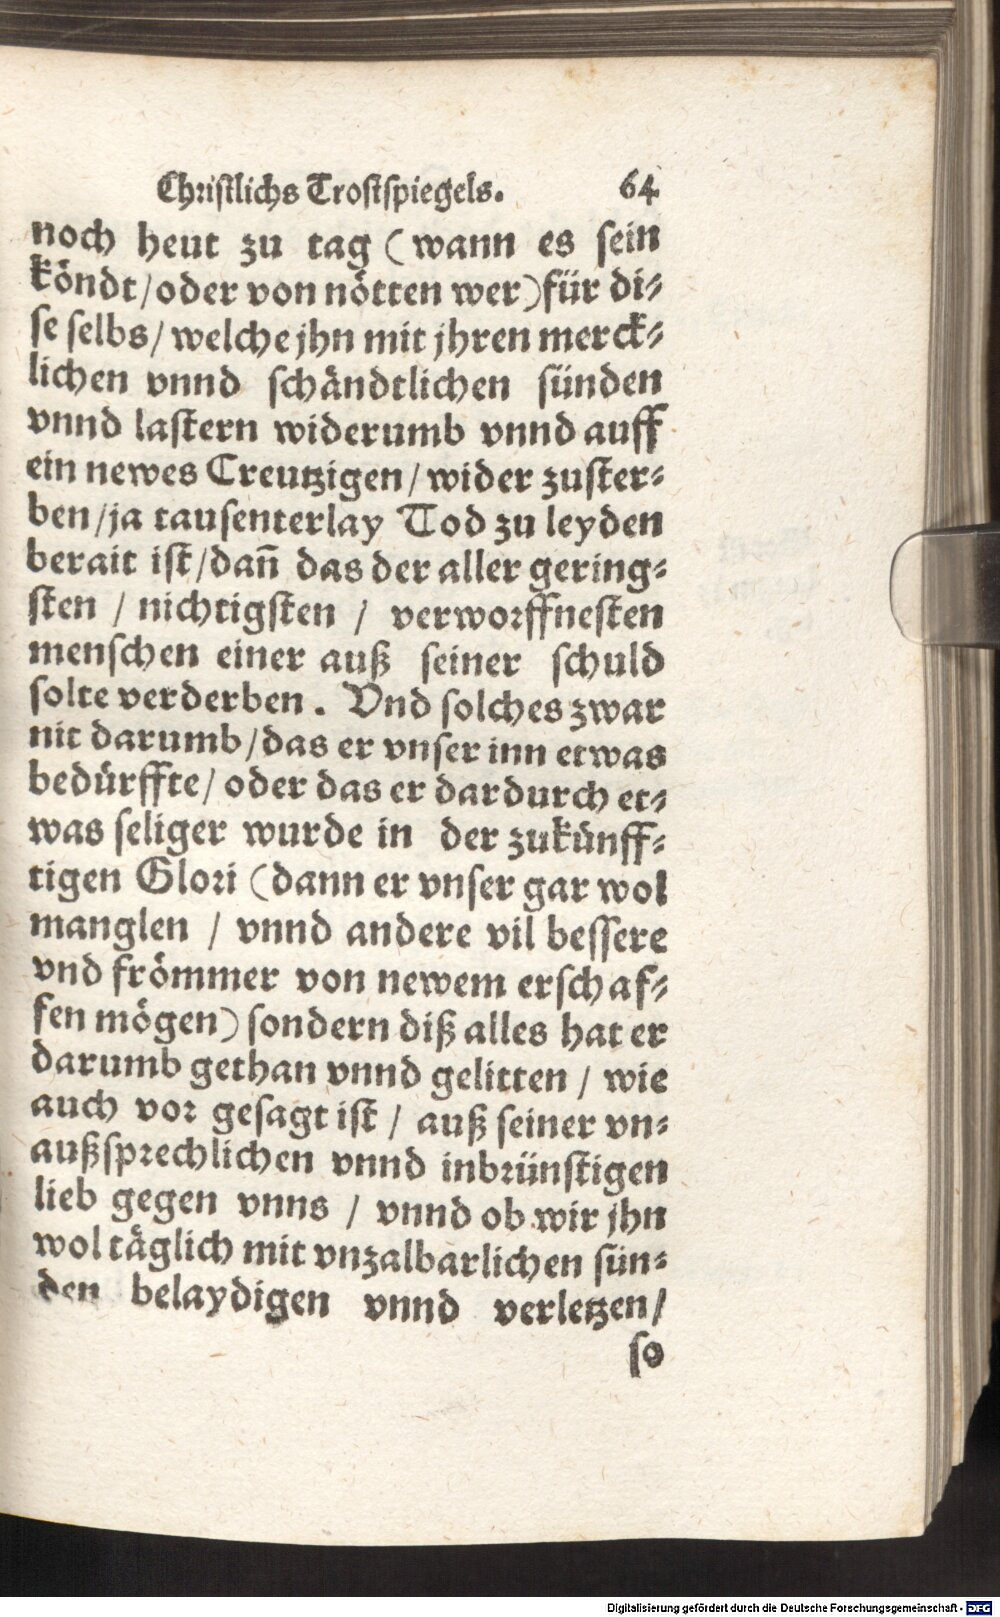 Christlichs Trostspiegels. 64
noch heut zu tag (wann es sein
köndt/oder von nötten wer) für di⸗
se selbs/ welche jhn mit jhren merck⸗
lichen vnnd schändtlichen sünden
vnnd lastern widerumb vnnd auff
ein newes Creutzigen/ wider zuster⸗
ben/ja tausenterlay Tod zu leyden
berait ist/dañ das der aller gering⸗
sten / nichtigsten / verworffnesten
menschen einer auß seiner schuld
solte verderben. Vnd solches zwar
nit darumb/das er vnser inn etwas
bedürffte/ oder das er dardurch et⸗
was seliger wurde in der zukünff⸗
tigen Glori (dann er vnser gar wol
manglen / vnnd andere vil bessere
vnd frömmer von newem erschaf⸗
fen mögen) sondern diß alles hat er
darumb gethan vnnd gelitten / wie
auch vor gesagt ist / auß seiner vn⸗
außsprechlichen vnnd inbrünstigen
lieb gegen vnns / vnnd ob wir jhn
wol täglich mit vnzalbarlichen sün⸗
den belaydigen vnnd verletzen/
so
Digitalisierung gefördert durch die Deutsche Forschungsgemeinschaft - DFG